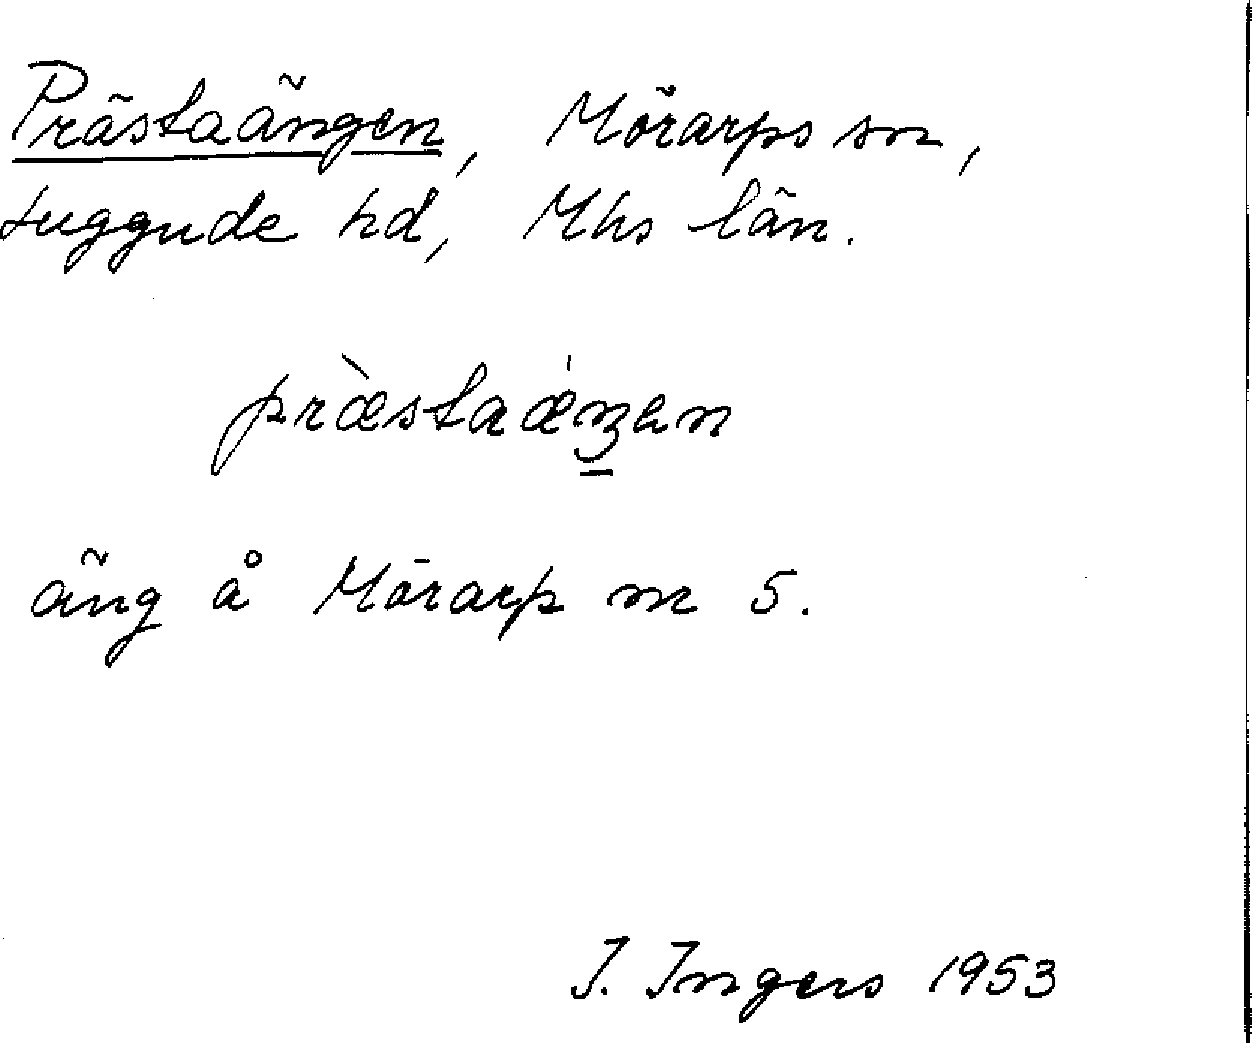 Prästaängen, Mörarps sn,
Luggude hd, Mhs län.
præ̀staǽŋen
äng å Mörarp nr 5.
I. Ingers 1953